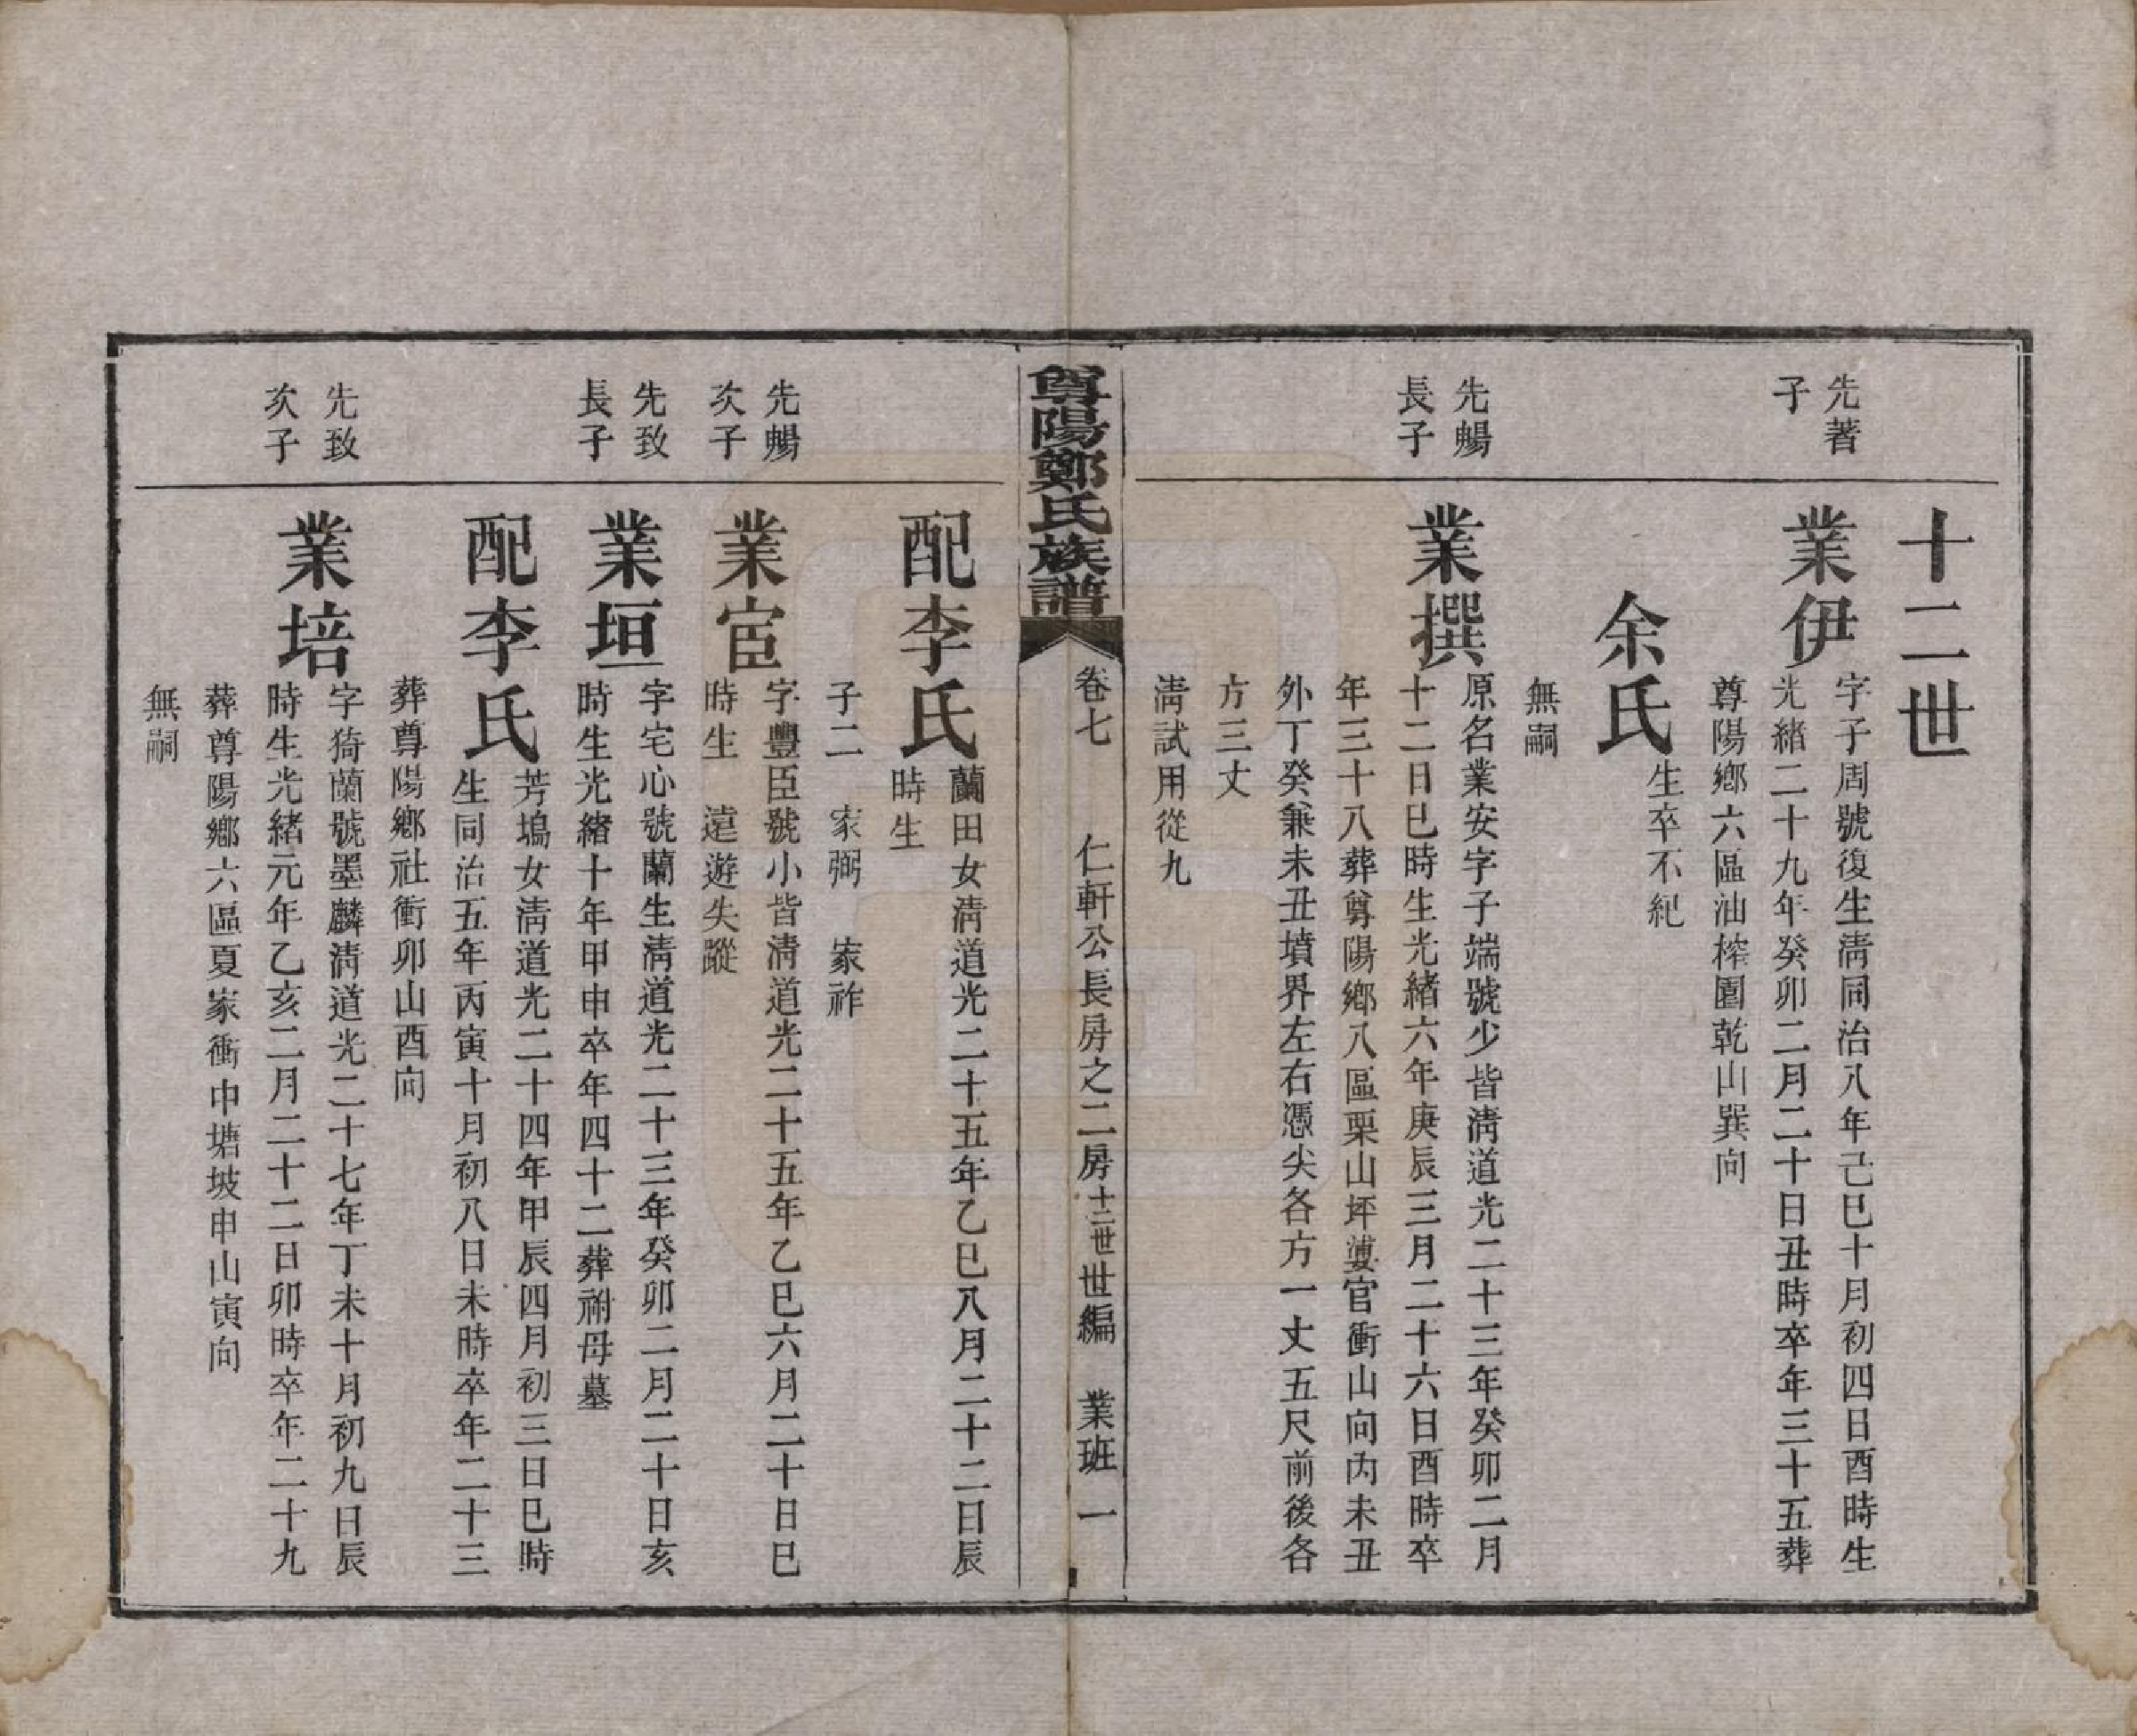 十二世
先著
子
業伊
字子周號復生淸同治八年己巳十月初四日酉時生
光緒二十九年癸卯二月二十日丑時卒年三十五葬
尊陽鄕六區油榨園乾山巽向
余氏
生卒不紀
無嗣
先暢
長子
業撰
原名業安字子端號少皆淸道光二十三年癸卯二月
十二日巳時生光緒六年庚辰三月二十六日酉時卒
年三十八葬尊陽鄕八區栗山坪婁官衝山向內未丑
外丁癸兼未丑墳界左右憑尖各方一丈五尺前後各
方三丈
淸試用從九
尊陽鄭氏族譜
卷七 仁軒公長房之二房十二世世編 業班 一
配李氏
蘭田女淸道光二十五年乙巳八月二十二日辰
時生
子二 家弼 家祚
先暢
次子
業宦
字豐臣號小皆淸道光二十五年乙巳六月二十日巳
時生 遠遊失蹤
先致
長子
業垣
字宅心號蘭生淸道光二十三年癸卯二月二十日亥
時生光緒十年甲申卒年四十二葬祔母墓
配李氏
芳塢女淸道光二十四年甲辰四月初三日巳時
生同治五年丙寅十月初八日未時卒年二十三
葬尊陽鄕社衝卯山酉向
先致
次子
業培
字猗蘭號墨麟淸道光二十七年丁未十月初九日辰
時生光緒元年乙亥二月二十二日卯時卒年二十九
葬尊陽鄕六區夏家衝中塘坡申山寅向
無嗣